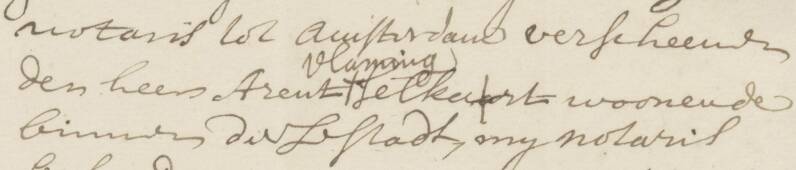 notaris tot Amsterdam verscheenen
Vlaming
den heer Arent woonende
binnen de Ze Stadt, my notaris